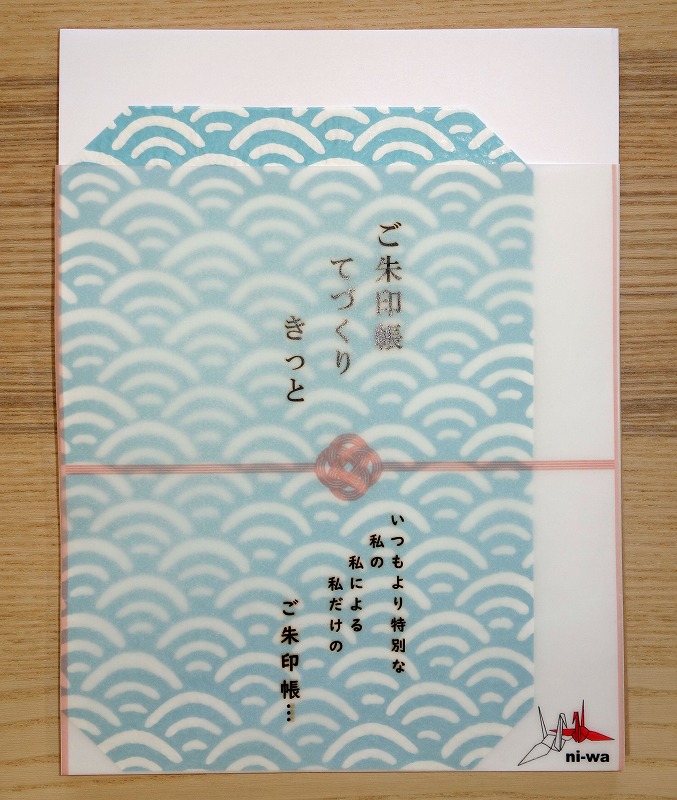 ご朱印帳
てづくり
きっと
いつもより特別な
私の
私による
私だけの
ご朱印帳…
ni-wa